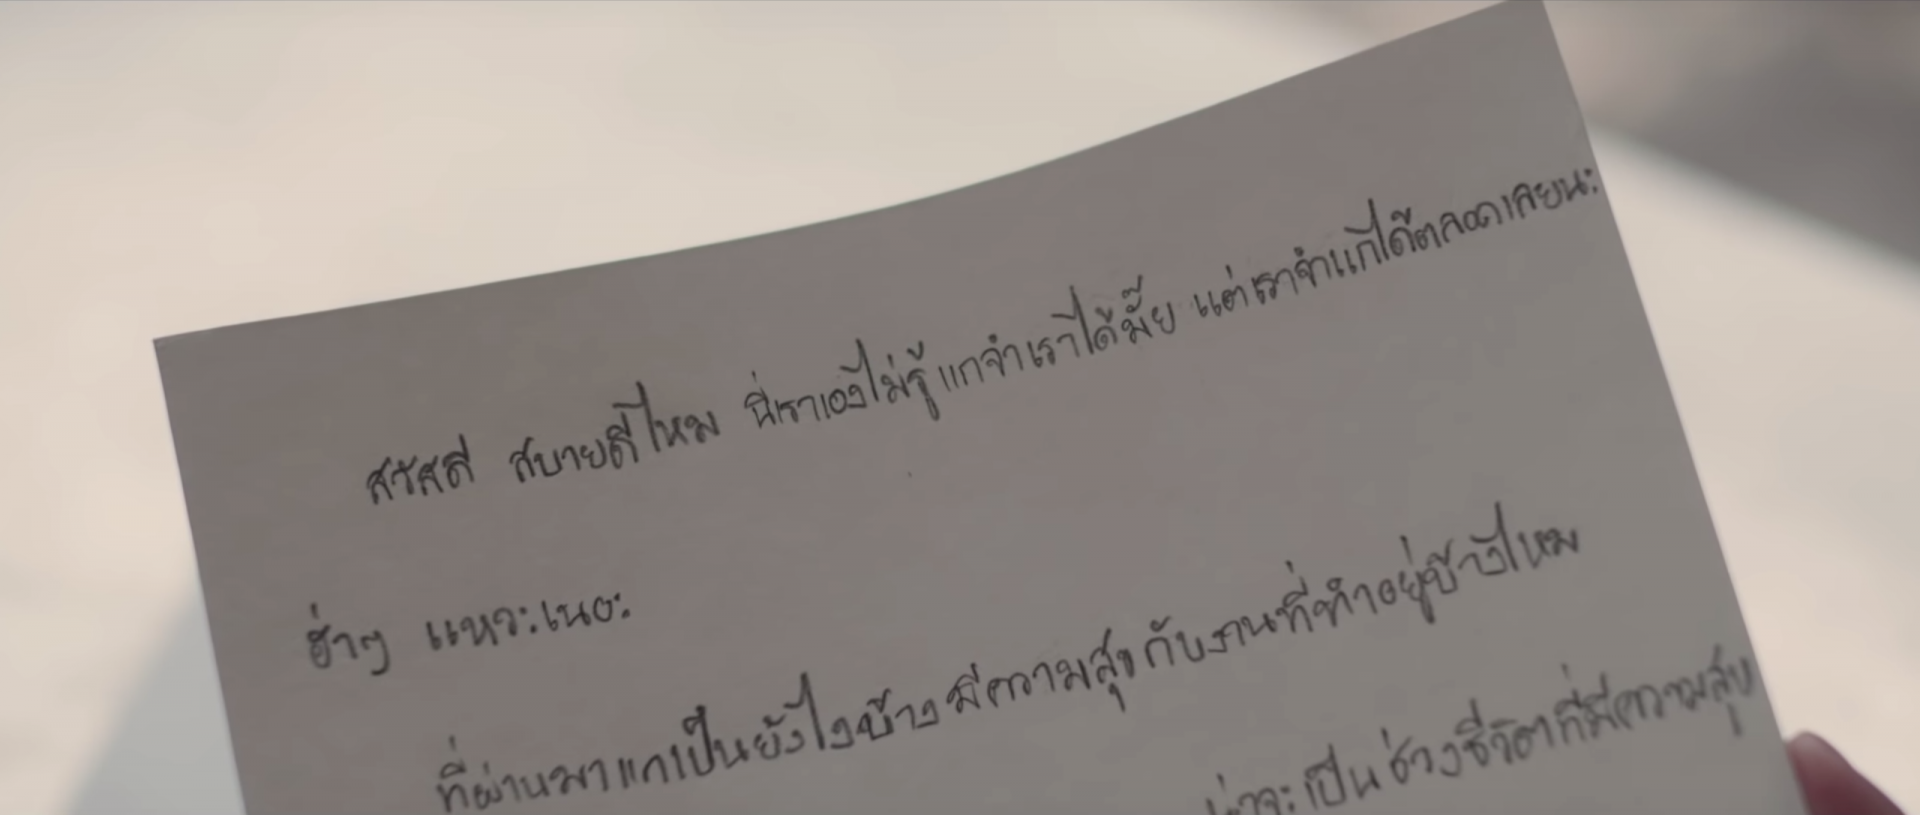 สวัสดี สบายดีไหม นี่เราเองไม่รู้แกจำเราได้มั๊ย แต่เราจำแกได้ตลอดเลยนะ
ฮ่าๆ แหวะเนอะ
ที่ผ่านมาแกเป็นยังไงบ้าง มีความสุขกับงานที่ทำอยู่บ้างไหม
น่าจะเป็นช่วงชีวิตที่มีความสุข